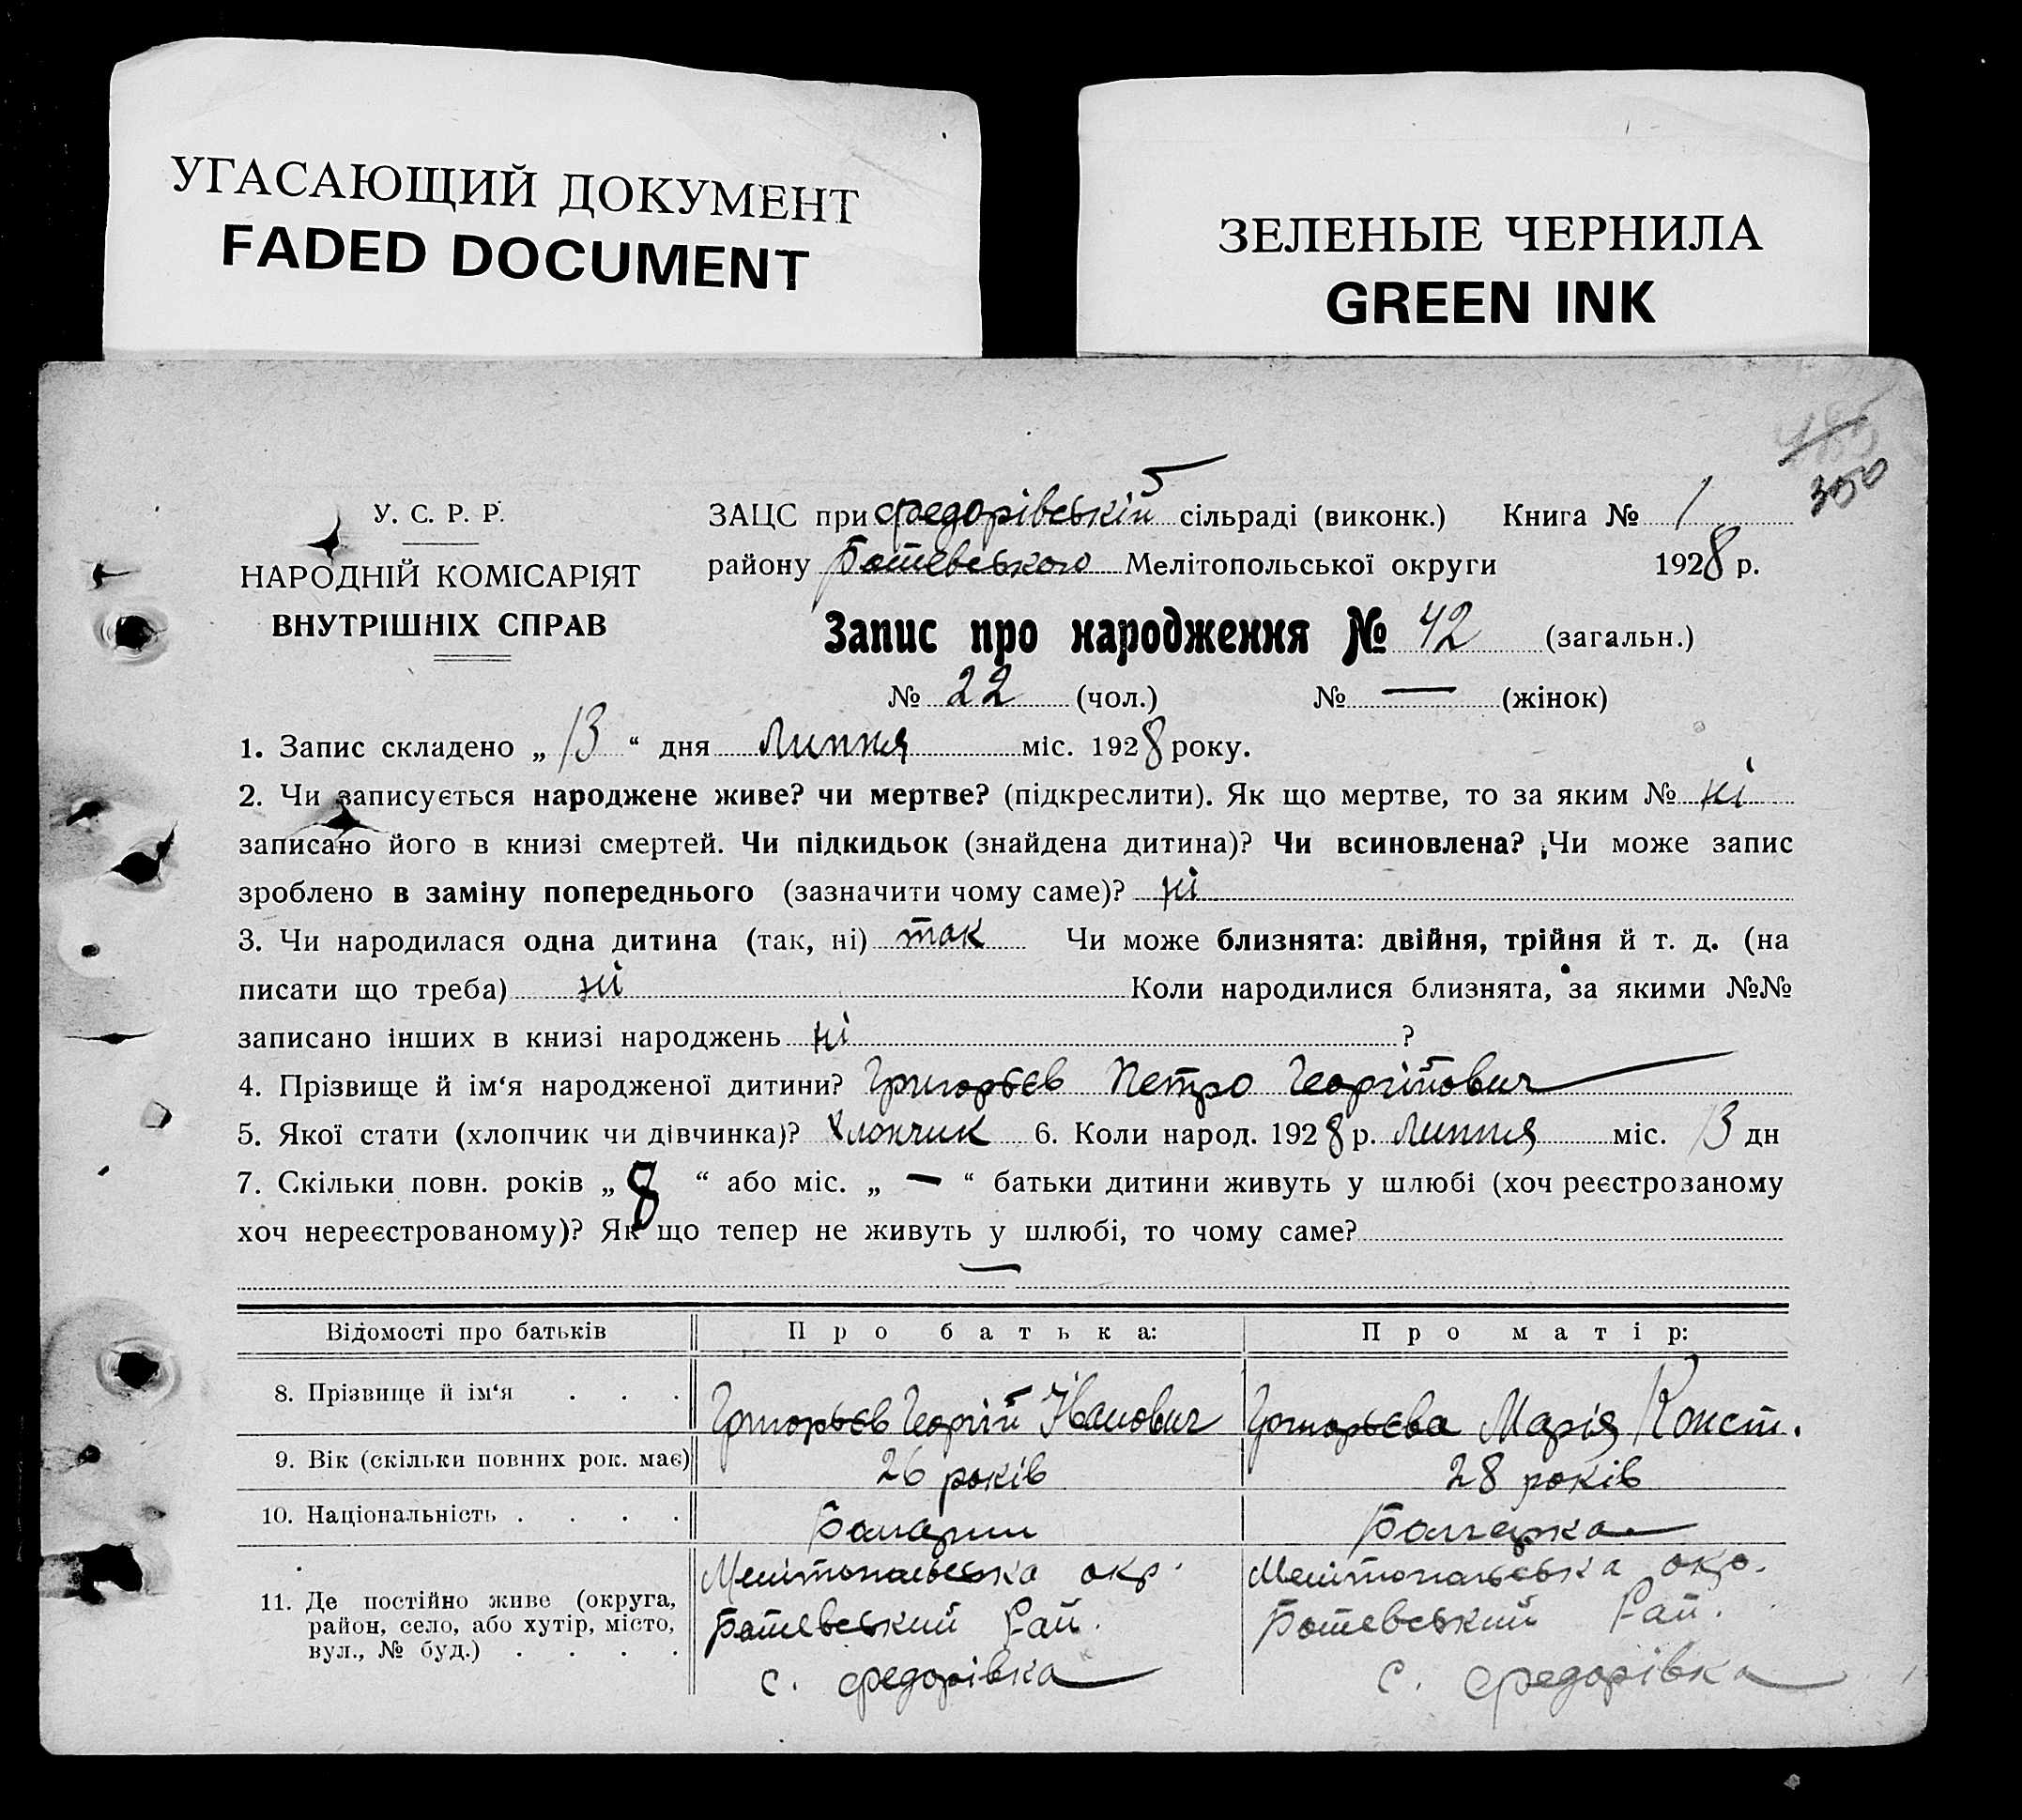 УГАСАЮЩИЙ ДОКУМЕНТ
FADED DOCUMENT
ЗЕЛЕНЫЕ ЧЕРНИЛА
GREEN INK
350
У. С. Р. Р.
НАРОДНІЙ КОМІСАРІЯТ
ВНУТРІШНІХ СПРАВ
ЗАЦС при Федорівській сільраді (виконк.) Книга № 1
району Ботевського Мелітопольської округи 1928 р.
Запис про народження № 42 (загальн.)
№ 22 (чол.) № — (жінок)
1. Запис складено „ 13 “ дня Липня міс. 1928 року.
2. Чи записується народжене живе? чи мертве? (підкреслити). Як що мертве, то за яким № ні
записано його в книзі смертей. Чи підкидьок (знайдена дитина)? Чи всиновлена? Чи може запис
зроблено в заміну попереднього (зазначити чому саме)? ні
3. Чи народилася одна дитина (так, ні) так Чи може близнята: двійня, трійня й т. д. (на
писати що треба) ні Коли народилися близнята, за якими №№
записано інших в книзі народжень ні ?
4. Прізвище й ім‘я народженої дитини? Григорьєв Петро Георгійович
5. Якої стати (хлопчик чи дівчинка)? Хлопчик 6. Коли народ. 1928 р. Липня міс. 13 дн
7. Скільки повн. років „ 8 “ або міс. „ — “ батьки дитини живуть у шлюбі (хоч реєстрозаному
хоч нереєстрованому)? Як що тепер не живуть у шлюбі, то чому саме?
—
Відомості про батьків Про батька: Про матір:
8. Прізвище й ім‘я . . . Григорьєв Георгій Іванович Григорьєва Марія Конст.
9. Вік (скільки повних рок. має) 26 років 28 років
10. Національність . . . . Болгарин Болгарка
11. Де постійно живе (округа, район, село, або хутір, місто, вул., № буд.) . . . .
Мелітопольська окр.
Ботевський Рай.
с. Федорівка
Мелітопольська окр.
Ботевський Рай.
с. Федорівка